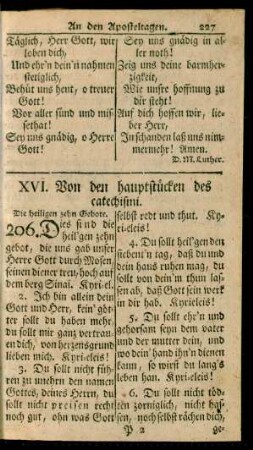 An den Aposteltagen. 227
Täglich, Herr Gott, wir
loben dich,
Und ehr'n dein'n nahmen
stetiglich,
Behüt uns heut, o treuer
Gott!
Vor aller sünd und mis-
sethat!
Sey uns gnädig, o Herre
Gott!
Sey uns gnädig in al-
ler noth!
Zeig uns deine barmher-
zigkeit,
Wie unsre hoffnung zu
dir steht!
Auf dich hoffen wir, lie-
ber Herr,
In schanden laß uns nim-
mermehr! Amen.
D. M. Luther.
XVI. Von den hauptstücken des
catechismi.
Die heiligen zehn Gebote.
206. Dies sind die
heil'gen zehn
gebot, die uns gab unser
Herre Gott durch Mosen
seinen diener treu, hoch auf
dem berg Sinai. Kyri-el.
2. Ich bin allein dein
Gott und Herr, kein' göt-
ter sollt du haben mehr,
du sollt mir ganz vertrau-
en dich, von herzensgrund
lieben mich. Kyri-eleis!
3. Du sollt nicht füh-
ren zu unehrn den namen
Gottes, deines Herrn, du
sollt nicht preisen recht
noch gut, ohn was Gott
selbst redt und thut. Ky-
ri-eleis!
4. Du sollt heil'gen den
sieben'n tag, daß du und
dein haus ruhen mag, du
sollt von dein'm thun las-
sen ab, daß Gott sein werk
in dir hab. Kyrieleis!
5. Du sollt ehr'n und
gehorsam seyn dem vater
und der mutter dein, und
wo dein' hand ihn'n dienen
kann, so wirst du lang's
leben han. Kyri-eleis!
6. Du sollt nicht töd-
ten zorniglich, nicht has-
sen, noch selbst rächen dich,
P 2 ge-